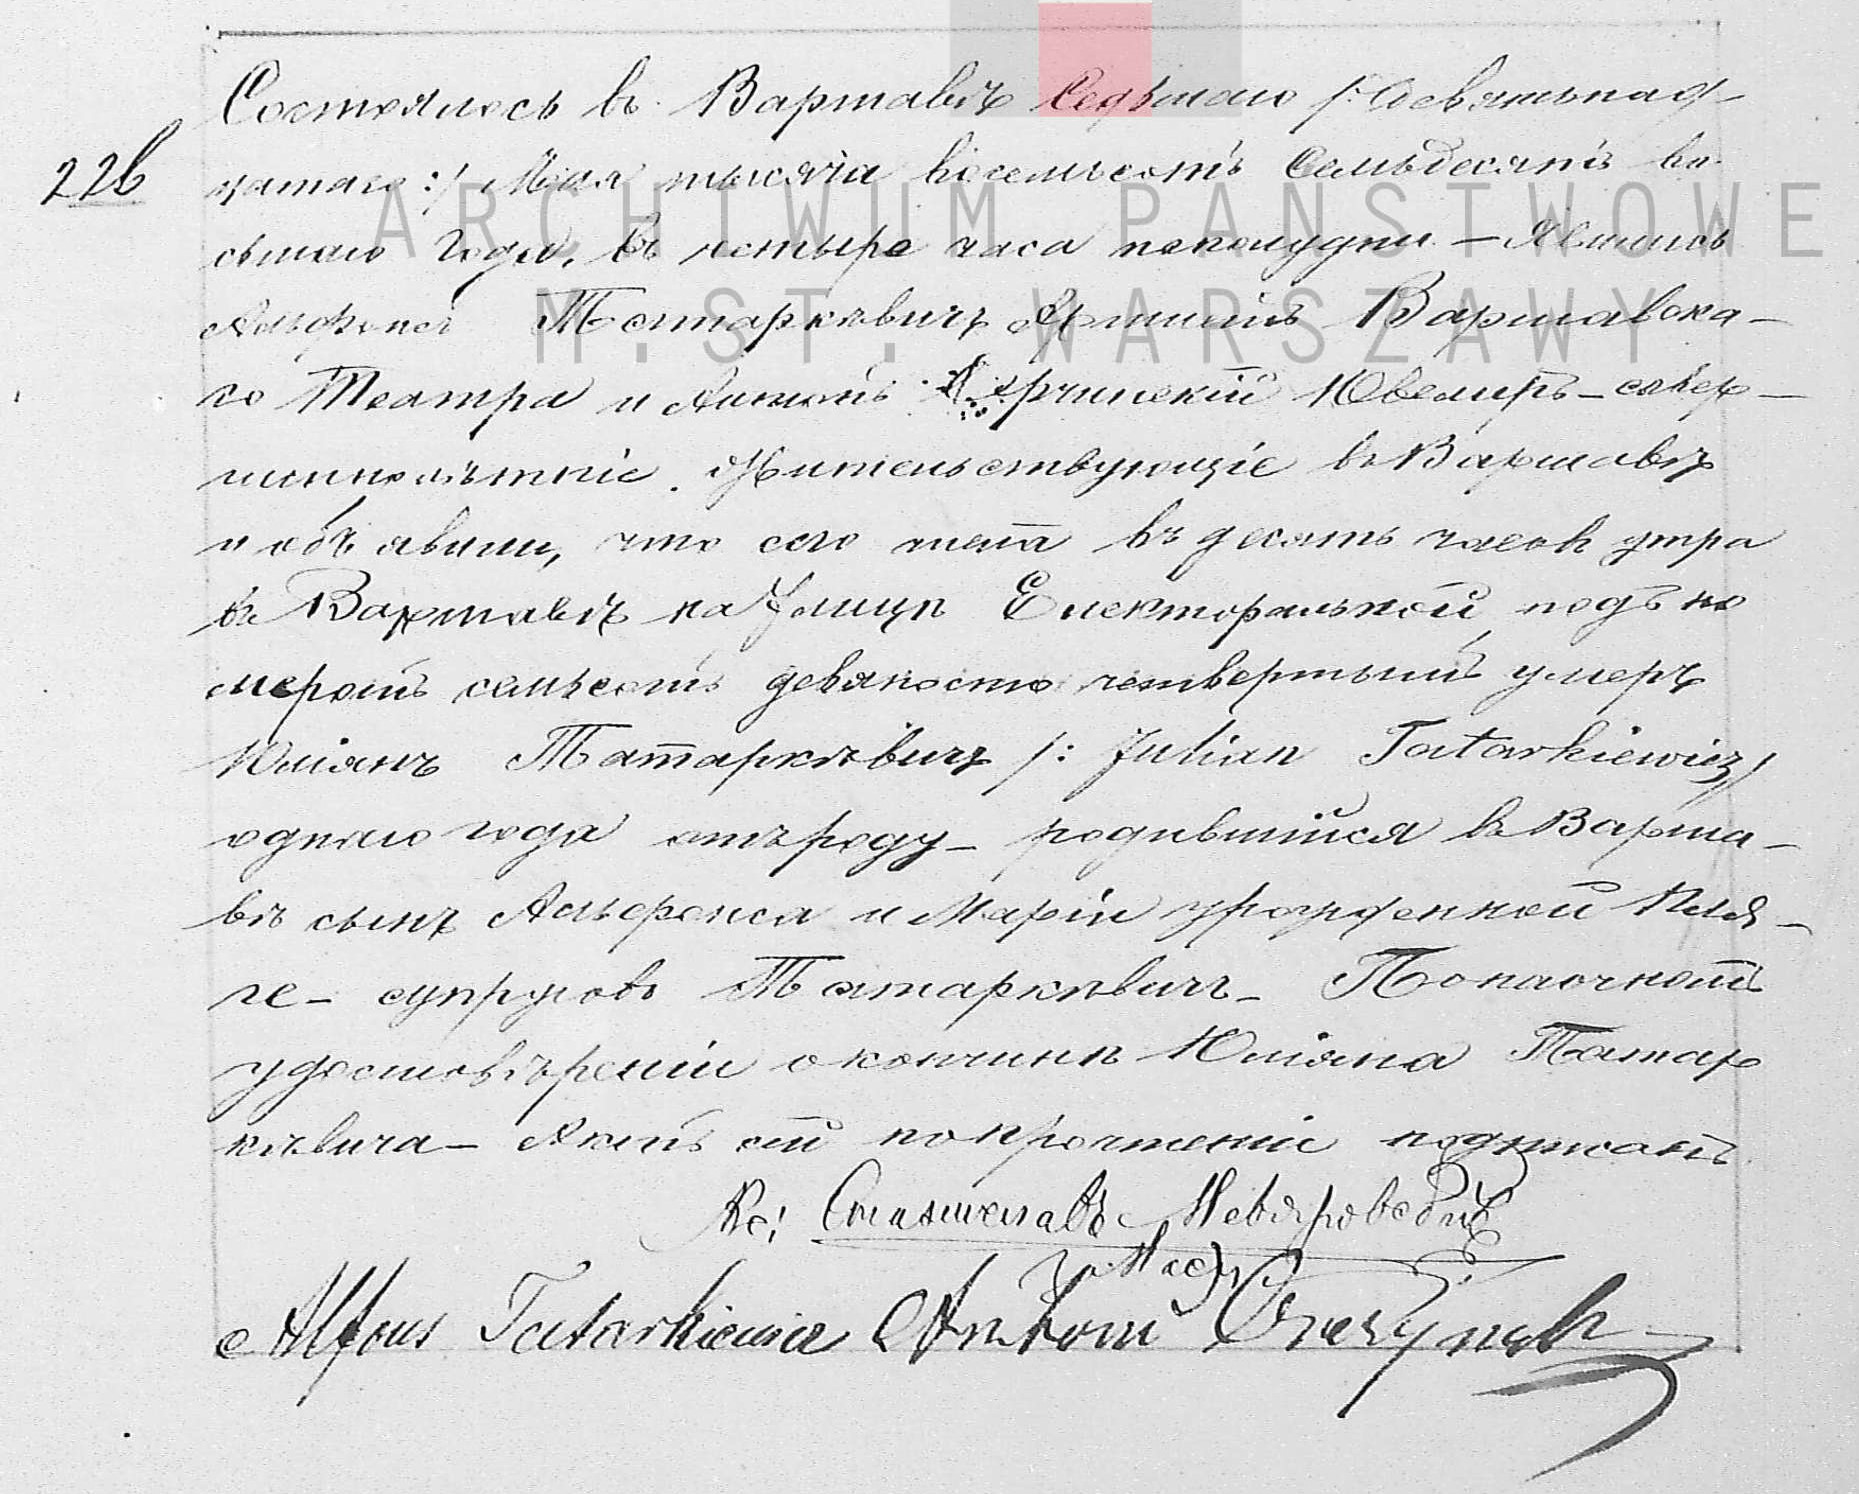 Состоялось въ Варшавѣ Седьмаго /: Девятьнад-
226
цатаго :/ Мая тысяча восемьсотъ Семьдесятъ во
сьмаго года, въ четыре часа пополудни – Явились
Альфонсъ Татаркѣвичъ Артистъ Варшавска-
го Театра и Антонъ Ювелиръ – совер-
шеннолѣтніе. Жительствующіе въ Варшавѣ
и объявили, что сего числа въ десять часовъ утра
въ Варшавѣ на Улицѣ Електоральной подъ но
меромъ семьсотъ девяносто четвертымъ умеръ
Юліянъ Татаркѣвичъ /: Julian Tatarkiewicz/
одного года отъ роду – родившійся въ Варша-
вѣ сынъ Альфонса и Маріи урожденной Пля-
ге – супруговъ Татаркѣвичъ – По наочномъ
удостовѣреніи о кончинѣ Юліяна Татар
кѣвича – Актъ сей по прочтеніи подписанъ
Кс: Станиславъ
Alfons Tatarkiewicz Antoni
ARCHIWUM PAŃSTWOWE
M. ST. WARSZAWY